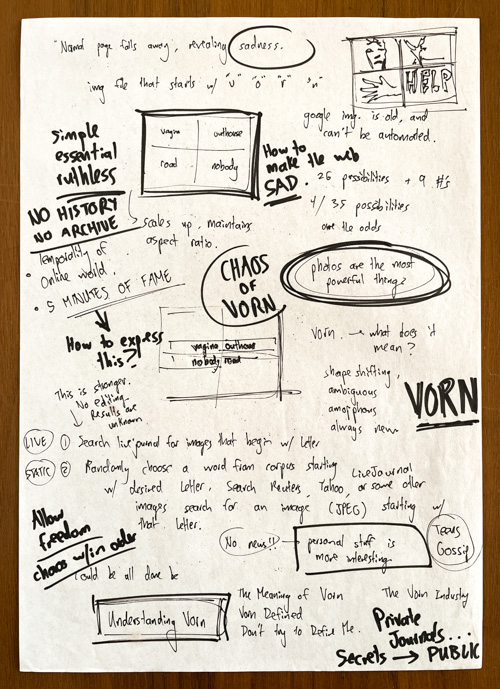 "Named page falls away, revealing sadness.
img file that starts w/ "v" "o" "r" "n"
HELP
google img. is old, and
can't be automated.
Simple
essential
ruthless
vagina outhouse
road nobody
How to
make the web
SAD.
26 possibilities + 9 #'s
4/35 possibilities
are the odds
NO HISTORY
NO ARCHIVE
scales up, maintains
aspect ratio.
• Temporality of
Online world.
• 5 MINUTES OF FAME
CHAOS
OF
VORN
photos are the most
powerful thing?
How to express
this?
vagina outhouse
nobody road
Vorn. → what does it
mean?
shape shifting,
ambiguous
amorphous
always new
VORN
This is stronger.
No editing.
Results are
unknown
LIVE ① Search livejournal for images that begin w/ letter
STATIC ② Randomly choose a word from corpus starting
w/ desired letter. Search Reuters, Yahoo, or some other
LiveJournal
images search for an image (JPEG) starting w/
that letter.
Allow
freedom
chaos w/in order
No news!!
personal stuff is
more interesting.
Tears
Gossip
Could be all done be
Understanding Vorn
The Meaning of Vorn
Vorn Defined
Don't try to Define Me.
The Vorn Industry
Private
Journals...
Secrets → PUBLIC